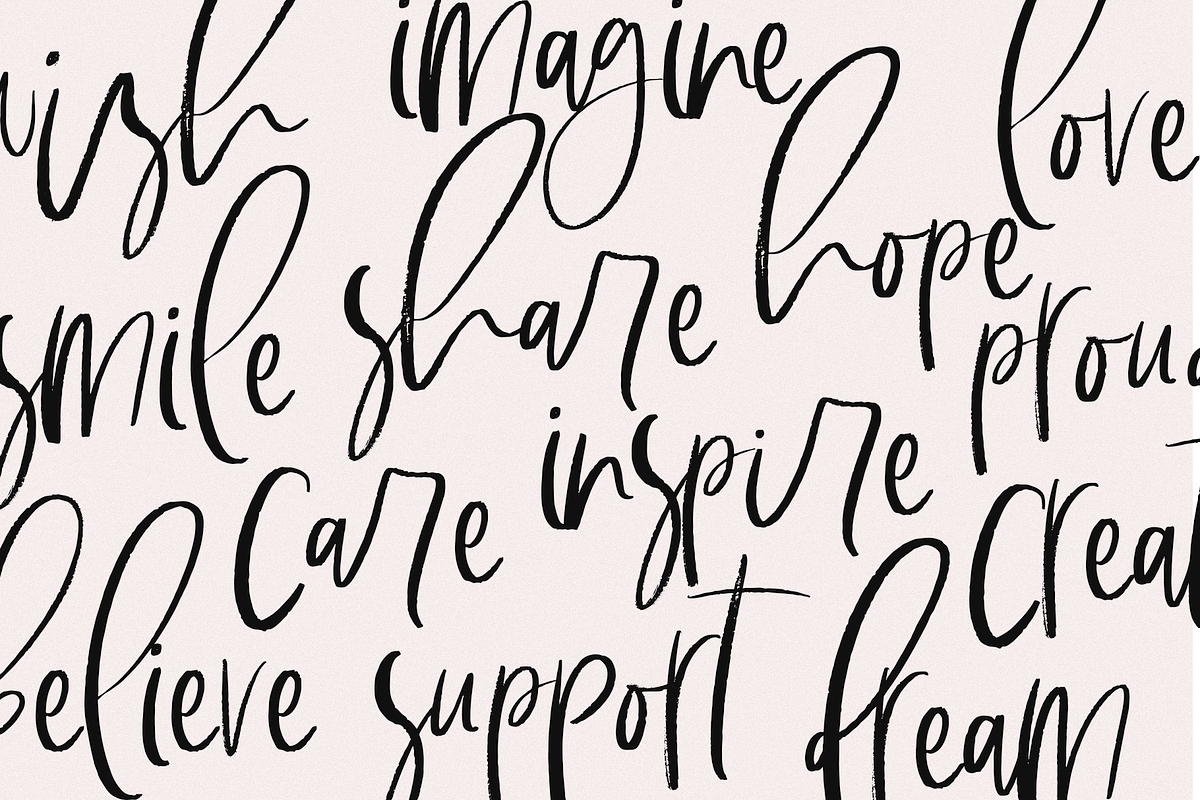 wish imagine love
smile share hope
proud
care inspire creat
believe support dream